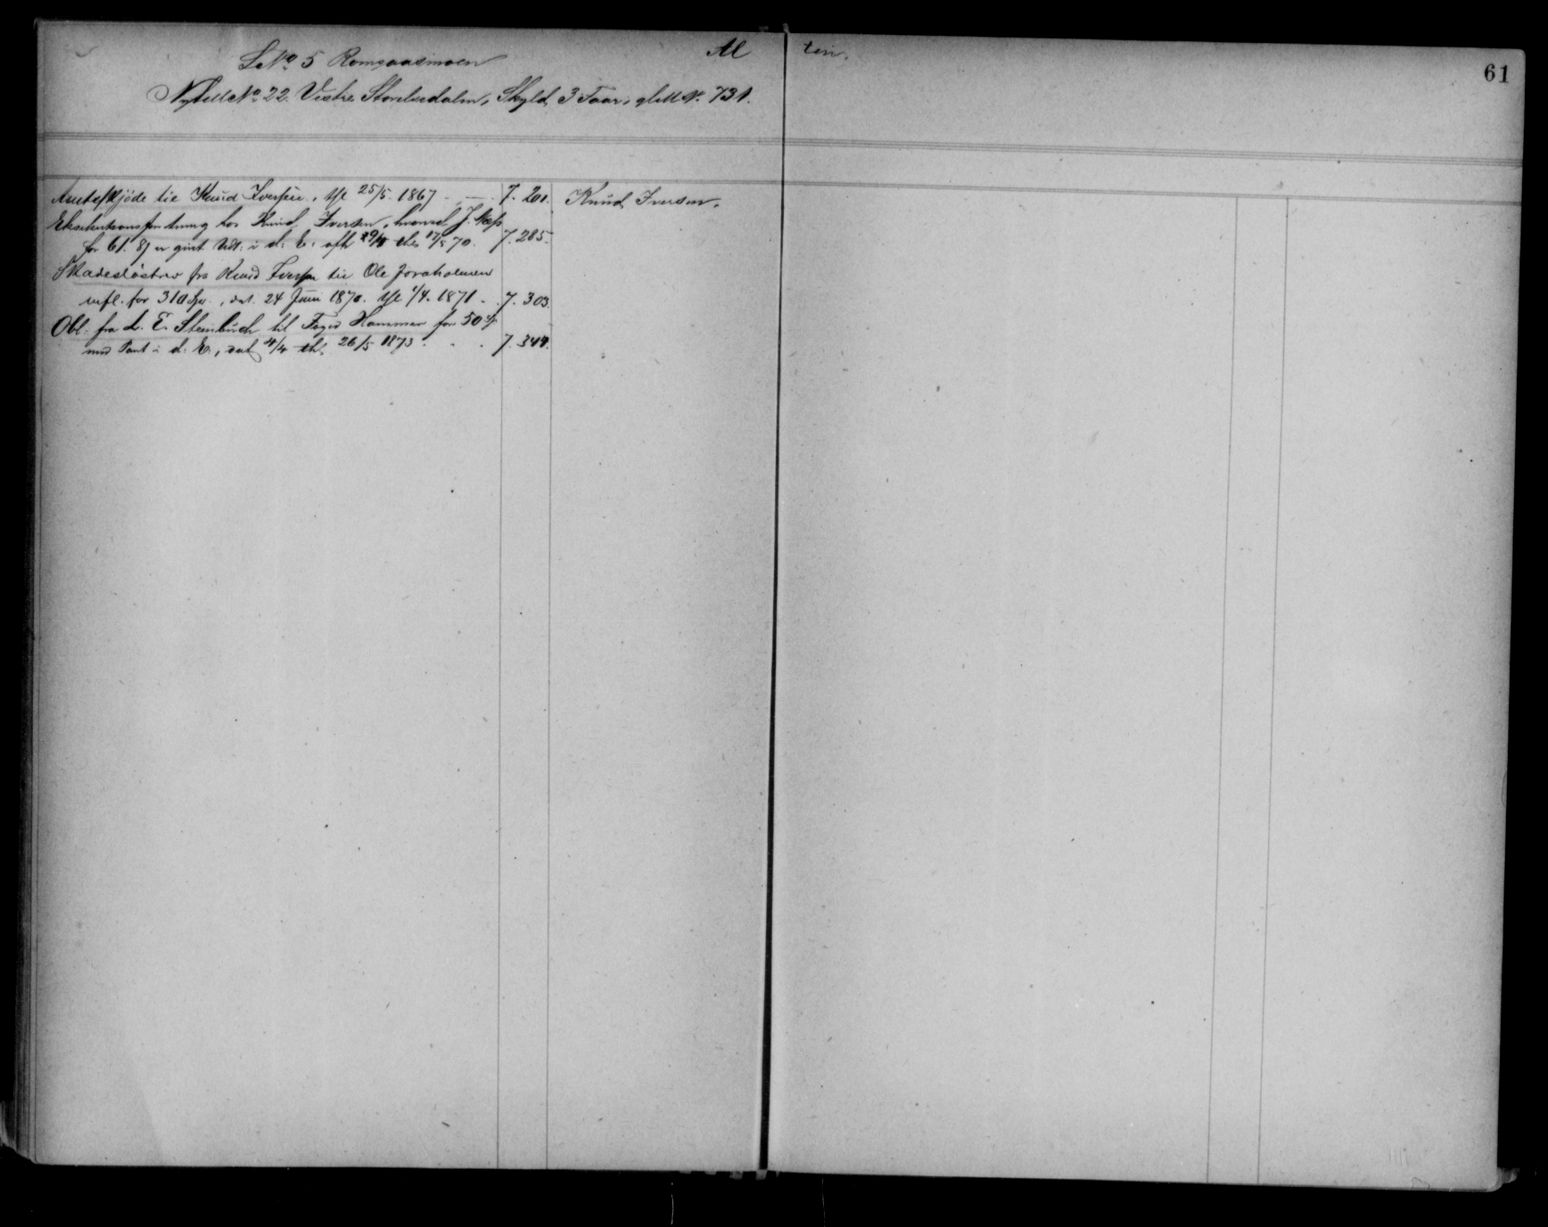 LNo 5 Romsaasmoen
Al ten.
61
Nytell No 22. Vestre Storelvdalen, Skyld 3 Daar, gl M N. 731.
Amtsskjöde til Knud Iversen, thl 25/5 1867 - 7. 201. Knud Iversen.
Eksekutionsforretning hos Knud Iversen, hvorved J.
for 61. 87 er gjort Udl. i d. E. afh 29/4 thl 17/5 70. 7. 285.
Skadeslösbrev fra Knud Iversen til Ole Joraholmen
for 310 Spd., dat. 24 Juni 1870. thl 1/4. 1871 - 7. 303.
Obl. fra L. E. Steenbuch til Hammer for 50 Sp
med Pant i d. E., dat 4/4 thl. 26/5 1873. . . 7. 344.